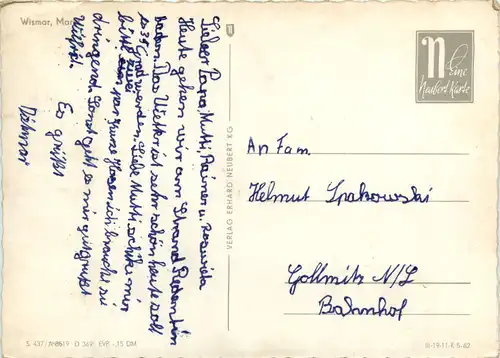 Wismar, Mar
Lieber Papa, Mutti, Rainer u. Roswieta
Heute gehen wir am Strand Redentin
baden. Das Wetter ist sehr schön heute soll
es 35 Grad werden. Liebe Mutti schicke mir
bitte ein par kurze Hosen ich brauche sie
dringend. Sonst geht es mir gut grüßt
Wilfrid.
Es grüßt
Dietmar
VERLAG ERHARD NEUBERT KG
n Eine
Neubert Karte
An Fam.
Helmut Spakowski
Gollmitz N/L
Bahnhof
S 437/ A 8619 D 369 EVP -,15 DM
III-19-11 K 5-62